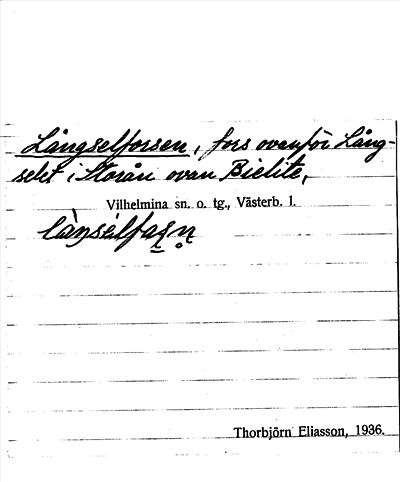 Långselforsen, fors ovanför Lång-
selet i Storån ovan Bielite,
Vilhelmina sn. o. tg., Västerb. l.
Thorbjörn Eliasson, 1936.